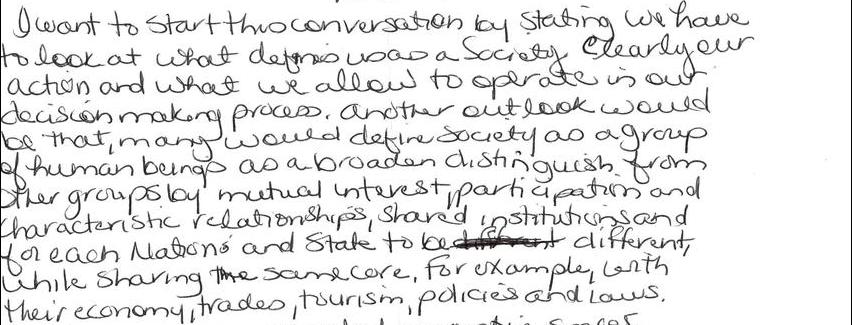 I want to start this conversation by stating we have
to look at what defines us as a Society. Clearly our
action and what we allow to operate is our
decision making process. another outlook would
be that, many would define Society as a group
of human beings as a broaden distinguish from
other groups by mutual interest, participation and
characteristic relationships, shared institutions and
for each Nations and State to be different,
while sharing the same core, for example, with
their economy, trades, tourism, policies and laws.